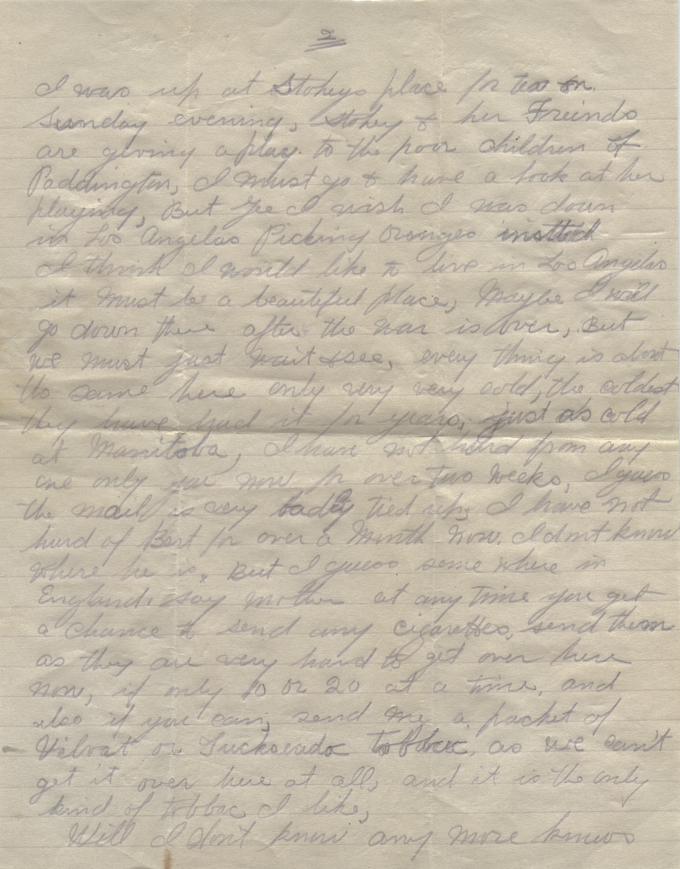 2
I was up at Stokeys place for tea on
Sunday evening, Stokey & her Freinds
are giving a play. to the poor children of
Paddington, I must go & have a look at her
playing, But Gee I wish I was down
in Los Angelas Picking Oranges instead
I think I would like to live in Los Angelas
it must be a beautiful place, Maybe I will
go down there after the war is over, But
we must just wait & see, every thing is about
the same here only very very cold, the coldest
they have had it for years, just as cold
at Manitoba, I have not heard from any
one only you now for over two weeks, I guess
the mail is very badly tied up, I have not
hurd of Bert for over a Month Now. I dont know
where he is, But I guess some where in
England, say mother at any time you get
a chance to send any cigarettes, send them
as they are very hard to get over here
now, if only 10 or 20 at a time, and
also if you can, send me a packet of
Vilvat or Tucksendo tobbac, as we can't
get it over here at all, and it is the only
kind of tobbac I like,
Will I don't know any more knews